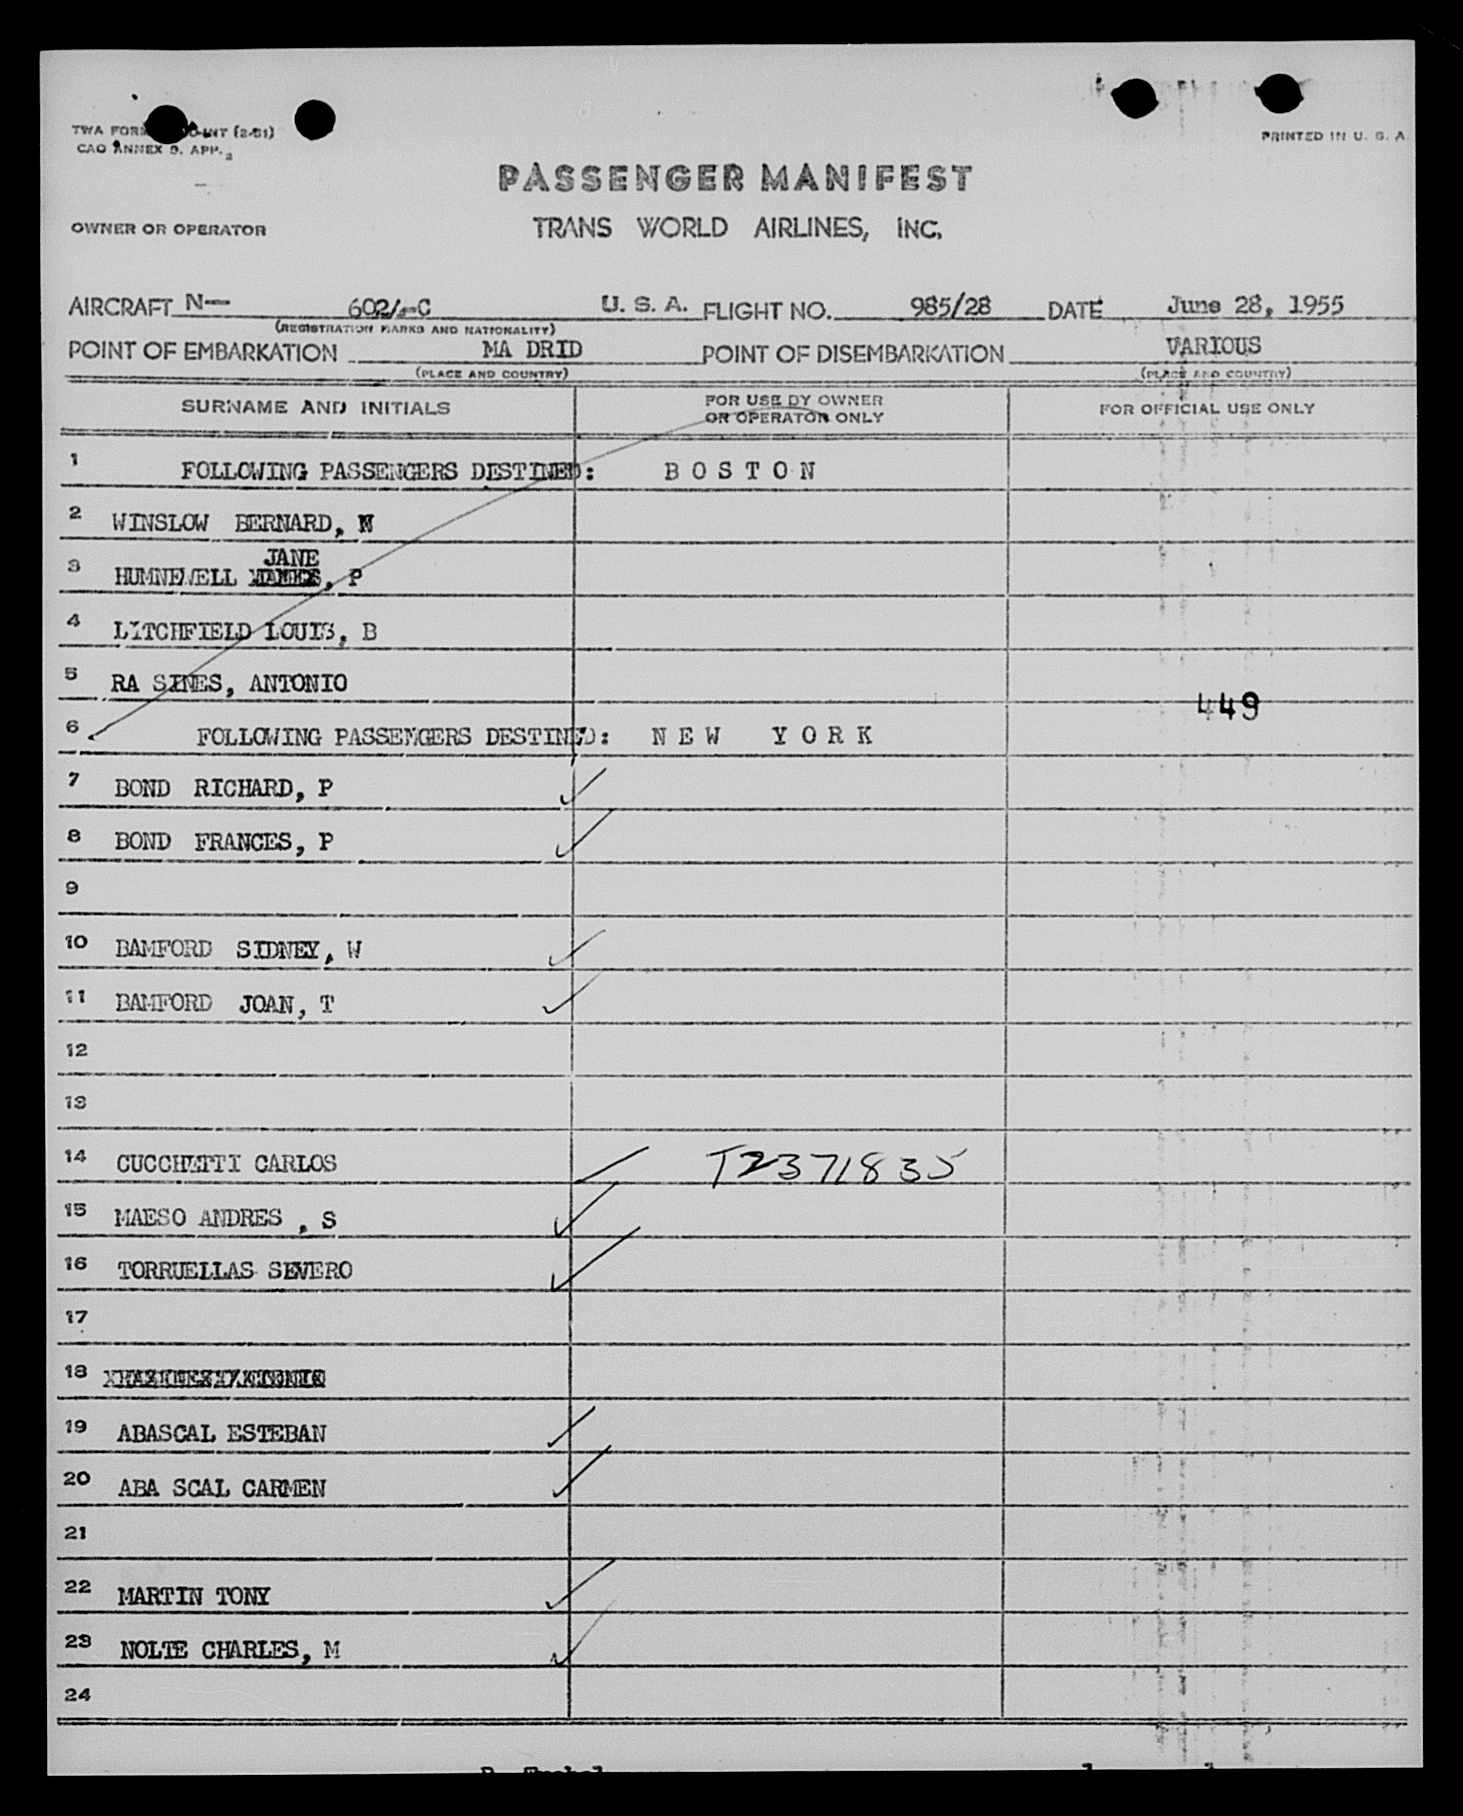 TWA FORM O-INT (2-51)
CAO ANNEX 9. APP. 2
PRINTED IN U. S. A.
PASSENGER MANIFEST
OWNER OR OPERATOR TRANS WORLD AIRLINES, INC.
AIRCRAFT N— 602/-C U. S. A. FLIGHT NO. 985/28 DATE June 28, 1955
(REGISTRATION MARKS AND NATIONALITY)
POINT OF EMBARKATION MA DRID POINT OF DISEMBARKATION VARIOUS
(PLACE AND COUNTRY) (PLACE AND COUNTRY)
SURNAME AND INITIALS FOR USE BY OWNER OR OPERATOR ONLY FOR OFFICIAL USE ONLY
1 FOLLOWING PASSENGERS DESTINED: B O S T O N
2 WINSLOW BERNARD, N
JANE
3 HUMNEWELL , P
4 LITCHFIELD LOUIS, B
5 RA SINES, ANTONIO
449
6 FOLLOWING PASSENGERS DESTINED: N E W Y O R K
7 BOND RICHARD, P
8 BOND FRANCES, P
9
10 BAMFORD SIDNEY, W
11 BAMFORD JOAN, T
12
13
14 CUCCHETTI CARLOS T2371835
15 MAESO ANDRES , S
16 TORRUELLAS SEVERO
17
18
19 ABASCAL ESTEBAN
20 ABA SCAL CARMEN
21
22 MARTIN TONY
23 NOLTE CHARLES, M
24